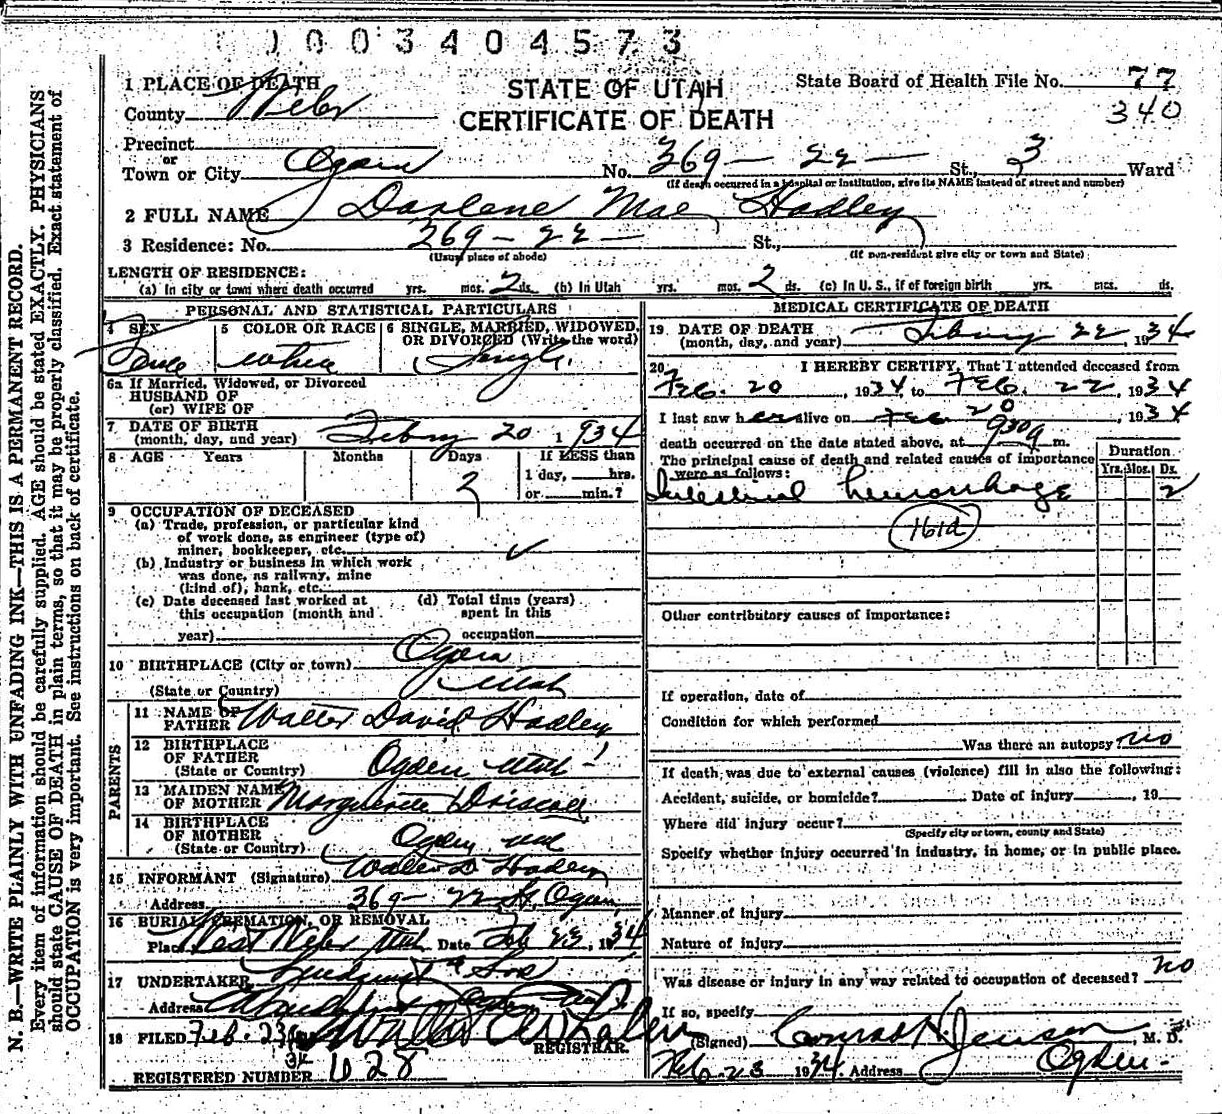 0003404573
1 PLACE OF DEATH
STATE OF UTAH
State Board of Health File No. 77
County Weber
CERTIFICATE OF DEATH
340
Precinct
or
Town or City Ogden No. 369 — 22 — St., 3 Ward
(If death occurred in a hospital or institution, give its NAME instead of street and number)
2 FULL NAME Darlene Mae Hadley
3 Residence: No. 369 — 22 — St.,
(Usual place of abode) (If non-resident give city or town and State)
LENGTH OF RESIDENCE:
(a) In city or town where death occurred yrs. mos. 2 ds. (b) In Utah yrs. mos. 2 ds. (c) In U. S., if of foreign birth yrs. mos. ds.
PERSONAL AND STATISTICAL PARTICULARS
4 SEX 5 COLOR OR RACE 6 SINGLE, MARRIED, WIDOWED,
OR DIVORCED (Write the word)
white Single.
6a If Married, Widowed, or Divorced
HUSBAND OF
(or) WIFE OF
7 DATE OF BIRTH
(month, day, and year) 20 1934
8 AGE Years Months Days If LESS than
2 1 day, hrs.
or min.?
9 OCCUPATION OF DECEASED
(a) Trade, profession, or particular kind
of work done, as engineer (type of)
miner, bookkeeper, etc. ✓
(b) Industry or business in which work
was done, as railway, mine
(kind of), bank, etc.
(c) Date deceased last worked at (d) Total time (years)
this occupation (month and spent in this
year) occupation
10 BIRTHPLACE (City or town) Ogden
(State or Country) Utah
PARENTS
11 NAME OF
FATHER Walter David Hadley
12 BIRTHPLACE
OF FATHER
(State or Country) Ogden Utah
13 MAIDEN NAME
OF MOTHER Marguerite Driscoll
14 BIRTHPLACE
OF MOTHER
(State or Country) Ogden
15 INFORMANT (Signature) Walter D Hadley
Address 369 - 22 St. Ogden
16 BURIAL, CREMATION, OR REMOVAL
Place West Weber Utah Date Feb 23, 1934
17 UNDERTAKER Lindquist & Sons
Address Ogden
18 FILED Feb. 23
34
REGISTRAR.
REGISTERED NUMBER 1028
MEDICAL CERTIFICATE OF DEATH
19 DATE OF DEATH
(month, day, and year) 22, 1934
20 I HEREBY CERTIFY, That I attended deceased from
Feb. 20, 1934, to Feb. 22, 1934
I last saw her alive on Feb 20, 1934
death occurred on the date stated above, at 930 a m.
The principal cause of death and related causes of importance
were as follows: Duration
Yrs. Mos. Ds.
Intestinal hemorrhage 2
161a
Other contributory causes of importance:
If operation, date of
Condition for which performed
Was there an autopsy? no
If death was due to external causes (violence) fill in also the following:
Accident, suicide, or homicide? Date of injury , 19
Where did injury occur?
(Specify city or town, county and State)
Specify whether injury occurred in industry, in home, or in public place.
Manner of injury
Nature of injury
Was disease or injury in any way related to occupation of deceased? no
If so, specify
(Signed) Conrad H. Jensen M. D.
Feb 23 1934. Address Ogden
N. B.—WRITE PLAINLY WITH UNFADING INK—THIS IS A PERMANENT RECORD.
Every item of information should be carefully supplied. AGE should be stated EXACTLY. PHYSICIANS
should state CAUSE OF DEATH in plain terms, so that it may be properly classified. Exact statement of
OCCUPATION is very important. See instructions on back of certificate.